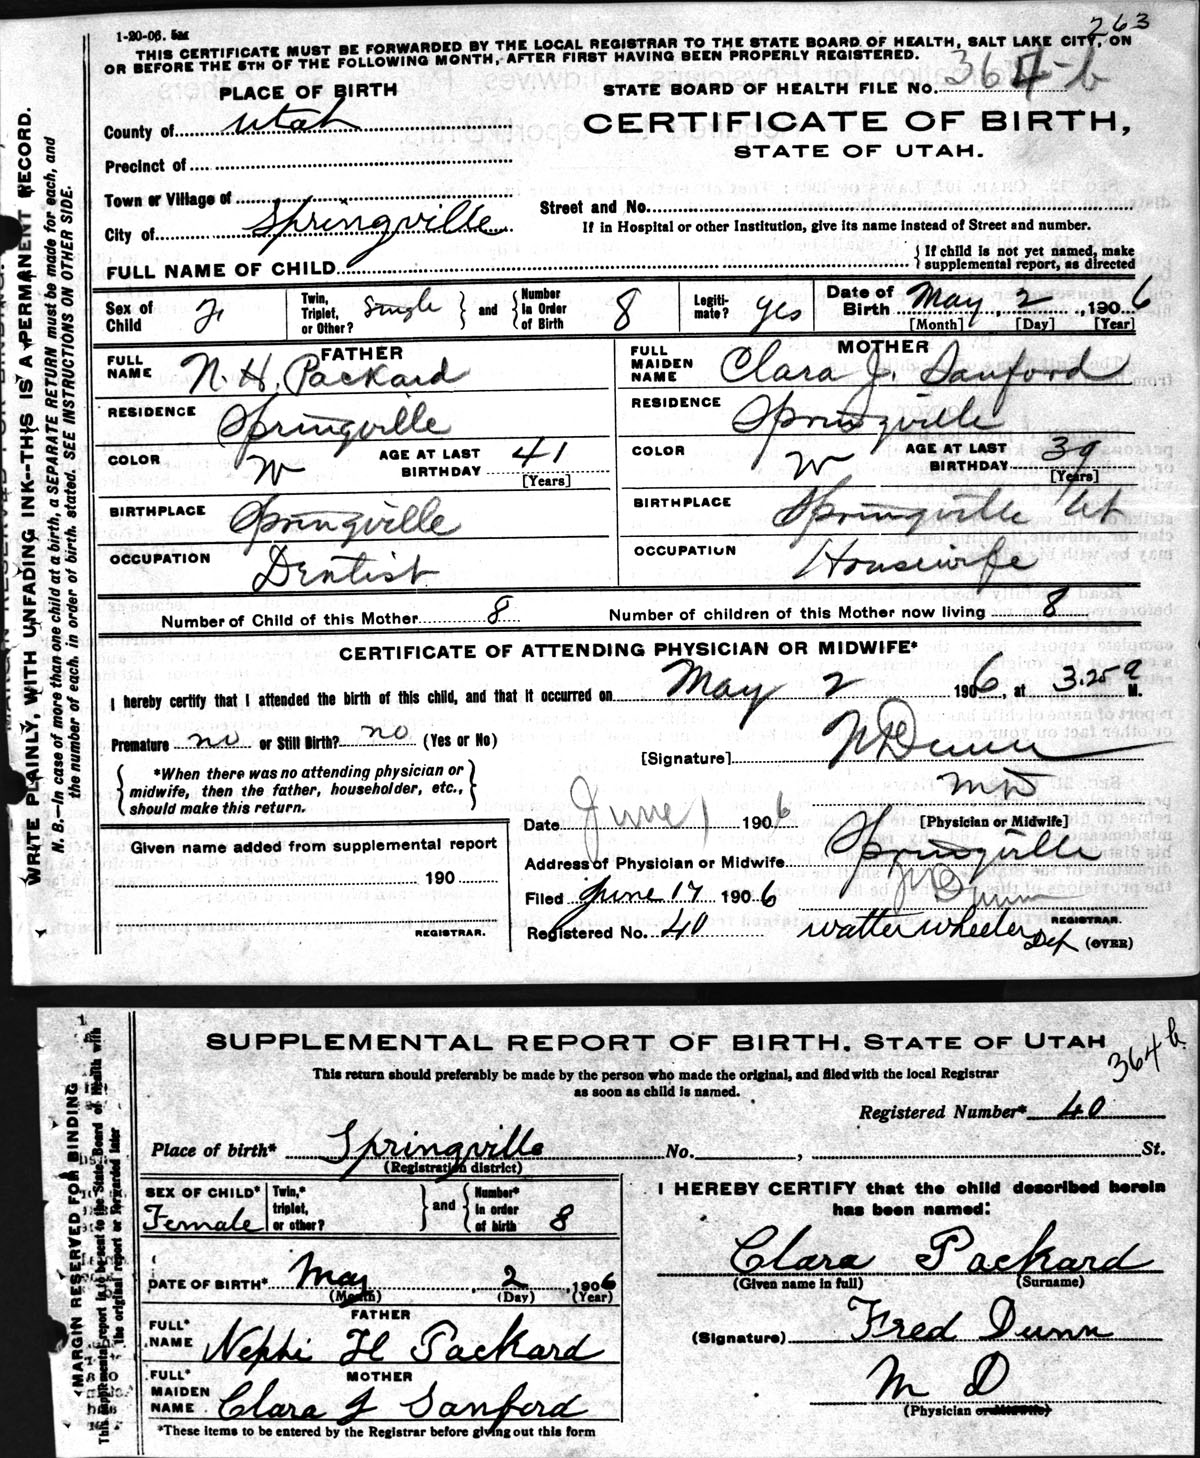 263
1-20-06. 5M
THIS CERTIFICATE MUST BE FORWARDED BY THE LOCAL REGISTRAR TO THE STATE BOARD OF HEALTH, SALT LAKE CITY, ON
OR BEFORE THE 5TH OF THE FOLLOWING MONTH, AFTER FIRST HAVING BEEN PROPERLY REGISTERED.
PLACE OF BIRTH
STATE BOARD OF HEALTH FILE NO. 364-b
County of Utah
CERTIFICATE OF BIRTH,
STATE OF UTAH.
Precinct of
Town or Village of
Street and No.
City of Springville
If in Hospital or other Institution, give its name instead of Street and number.
FULL NAME OF CHILD
{ If child is not yet named, make
supplemental report, as directed
Sex of Child F
Twin, Triplet, or Other? Single } and { Number In Order of Birth 8
Legiti-mate? yes
Date of Birth May 2, 1906
[Month] [Day] [Year]
FATHER
MOTHER
FULL NAME N. H. Packard
FULL MAIDEN NAME Clara J. Sanford
RESIDENCE Springville
RESIDENCE Springville
COLOR W AGE AT LAST BIRTHDAY 41 [Years]
COLOR W AGE AT LAST BIRTHDAY 39 [Years]
BIRTHPLACE Springville
BIRTHPLACE Springville Ut
OCCUPATION Dentist
OCCUPATION Housewife
Number of Child of this Mother 8 Number of children of this Mother now living 8
CERTIFICATE OF ATTENDING PHYSICIAN OR MIDWIFE*
I hereby certify that I attended the birth of this child, and that it occurred on May 2 1906, at 3.25 a M.
Premature no or Still Birth? no (Yes or No)
[Signature] Dunn
MD
{ *When there was no attending physician or
midwife, then the father, householder, etc.,
should make this return. }
[Physician or Midwife]
Date June 1 1906
Given name added from supplemental report
Address of Physician or Midwife Springville
190
Filed June 17 1906
Dunn
REGISTRAR.
REGISTRAR.
Registered No. 40
Walter Wheeler Dep (OVER)
WRITE PLAINLY, WITH UNFADING INK--THIS IS A PERMANENT RECORD.
N. B.—In case of more than one child at a birth, a SEPARATE RETURN must be made for each, and
the number of each, in order of birth, stated. SEE INSTRUCTIONS ON OTHER SIDE.
SUPPLEMENTAL REPORT OF BIRTH, STATE OF UTAH
364 b.
This return should preferably be made by the person who made the original, and filed with the local Registrar
as soon as child is named.
Registered Number* 40
Place of birth* Springville No. , St.
(Registration district)
SEX OF CHILD* Female
Twin,* triplet, or other? } and { Number* in order of birth 8
I HEREBY CERTIFY that the child described herein
has been named:
Clara Packard
(Given name in full) (Surname)
DATE OF BIRTH* May 2, 1906
(Month) (Day) (Year)
FATHER
FULL* NAME Nephi H Packard
(Signature) Fred Dunn
MOTHER
FULL* MAIDEN NAME Clara J Sanford
M D
(Physician or Midwife)
*These items to be entered by the Registrar before giving out this form
MARGIN RESERVED FOR BINDING
This supplemental report is to be sent to the State Board of Health with
the original report or forwarded later